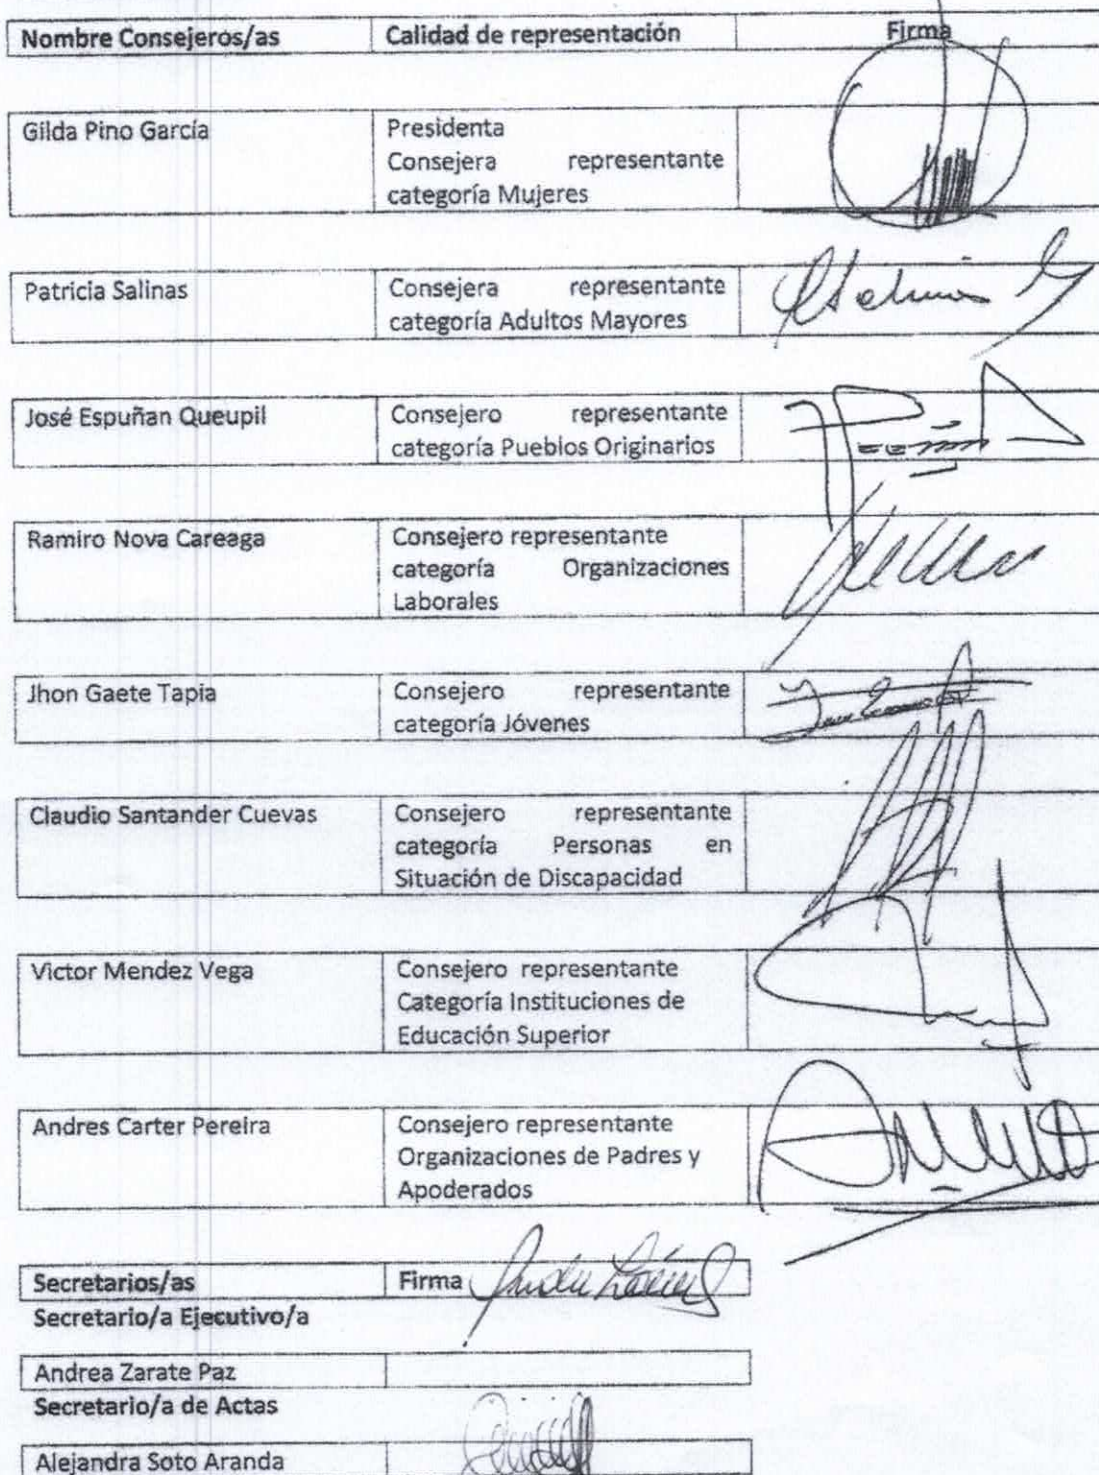 Nombre Consejeros/as Calidad de representación Firma
Gilda Pino García Presidenta
Consejera representante
categoría Mujeres
Patricia Salinas Consejera representante
categoría Adultos Mayores
José Espuñan Queupil Consejero representante
categoría Pueblos Originarios
Ramiro Nova Careaga Consejero representante
categoría Organizaciones
Laborales
Jhon Gaete Tapia Consejero representante
categoría Jóvenes
Claudio Santander Cuevas Consejero representante
categoría Personas en
Situación de Discapacidad
Victor Mendez Vega Consejero representante
Categoría Instituciones de
Educación Superior
Andres Carter Pereira Consejero representante
Organizaciones de Padres y
Apoderados
Secretarios/as Firma
Secretario/a Ejecutivo/a
Andrea Zarate Paz
Secretario/a de Actas
Alejandra Soto Aranda